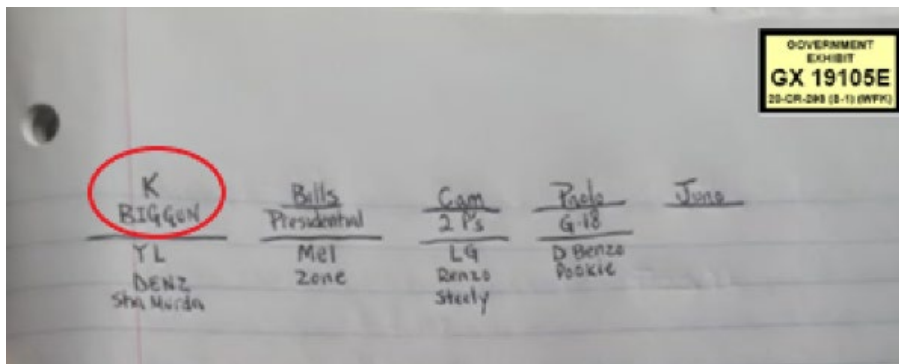 GOVERNMENT
EXHIBIT
GX 19105E
20-CR-298 (S-1) (WFK)
K
BIGGUN
YL
DENZ
Sha Murda
Bills
Presidential
Mel
Zone
Cam
2 P's
LG
Renzo
Steely
Paolo
G-18
D Benzo
Pookie